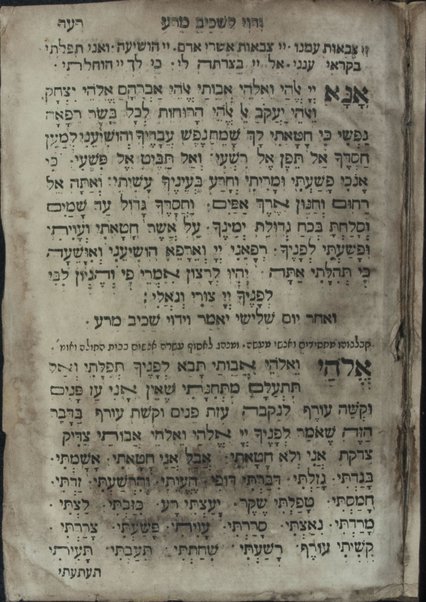 וידוי לשכיב מרע רעף
יי צבאות עמנו · יי צבאות אשרי אדם · יי הושיעה · ואני תפלתי
בקראי ענני · אל יי בצרתה לי · כי לך יי הוחלתי ·
אָנָּא יְיָ אֱלֹהַי וֵאלֹהֵי אֲבוֹתַי אֱלֹהֵי אַבְרָהָם אֱלֹהֵי יִצְחָק
וֵאלֹהֵי יַעֲקֹב אֱלֹהֵי הָרוּחוֹת לְכָל בָּשָׂר רְפָאָה
נַפְשִׁי כִּי חָטָאתִי לָךְ שַׂמֵּחַ נֶפֶשׁ עַבְדֶּךָ וְהוֹשִׁיעֵנִי לְמַעַן
חַסְדֶּךָ אַל תֵּפֶן אֶל רִשְׁעִי · וְאַל תַּבִּיט אֶל פִּשְׁעִי · כִּי
אָנֹכִי פָּשַׁעְתִּי וּמָרִיתִי וְהָרַע בְּעֵינֶיךָ עָשִׂיתִי · וְאַתָּה אֵל
רַחוּם וְחַנּוּן אֶרֶךְ אַפַּיִם · וְחַסְדְּךָ גָּדוֹל עַד שָׁמַיִם
וְסָלַחְתָּ בְּכֹחַ גְּדוּלַּת יְמִינֶךָ · עַל אֲשֶׁר חָטָאתִי וְעָוִיתִי
וּפָשַׁעְתִּי לְפָנֶיךָ · רְפָאֵנִי יְיָ וְאֵרָפֵא הוֹשִׁיעֵנִי וְאִוָּשֵׁעָה
כִּי תְהִלָּתִי אָתָּה · יִהְיוּ לְרָצוֹן אִמְרֵי פִי וְהֶגְיוֹן לִבִּי
לְפָנֶיךָ יְיָ צוּרִי וְגוֹאֲלִי :
ואחר יום שלישי יאמר וידוי שכיב מרע ·
קבלנוהו מחסידים ואנשי מעשה · ומנהג לאסוף עשרה אנשים בבית החולה ואומ'
אֱלֹהַי וֵאלֹהֵי אֲבוֹתַי תָּבֹא לְפָנֶיךָ תְּפִלָּתִי וְאַל
תִּתְעַלַּם מִתְּחִנָּתִי שֶׁאֵין אֲנִי עַז פָּנִים
וּקְשֵׁה עוֹרֶף לִנְקֵבָה עזת פנים וקשת עורף בַּדָּבָר
הַזֶּה שֶׁאוֹמַר לְפָנֶיךָ יְיָ אֱלֹהַי וֵאלֹהֵי אֲבוֹתַי צַדִּיק
צדקת אֲנִי וְלֹא חָטָאתִי · אֲבָל אֲנִי חָטָאתִי · אָשַׁמְתִּי ·
בָּגַדְתִּי · גָּזַלְתִּי · דִּבַּרְתִּי דוֹפִי · הֶעֱוֵיתִי · וְהִרְשַׁעְתִּי · זַדְתִּי ·
חָמַסְתִּי · טָפַלְתִּי שֶׁקֶר · יָעַצְתִּי רָע · כִּזַּבְתִּי · לַצְתִּי ·
מָרַדְתִּי · נִאַצְתִּי · סָרַרְתִּי · עָוִיתִי · פָּשַׁעְתִּי · צָרַרְתִּי ·
קִשִּׁיתִי עוֹרֶף · רָשַׁעְתִּי · שִׁחַתִּי · תִּעַבְתִּי · תָּעִיתִי ·
תעתעתי